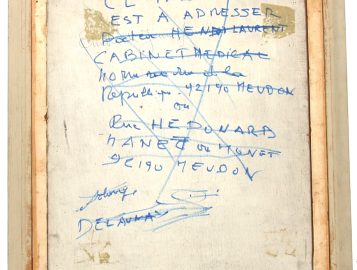 CE
EST A ADRESSER
Docteur HENRI LAURENT
CABINET MEDICAL
rue de la
République 92190 MEUDON
ou
Rue HEDOUARD
MANET ou MONET
92190 MEUDON
DELAUNAY